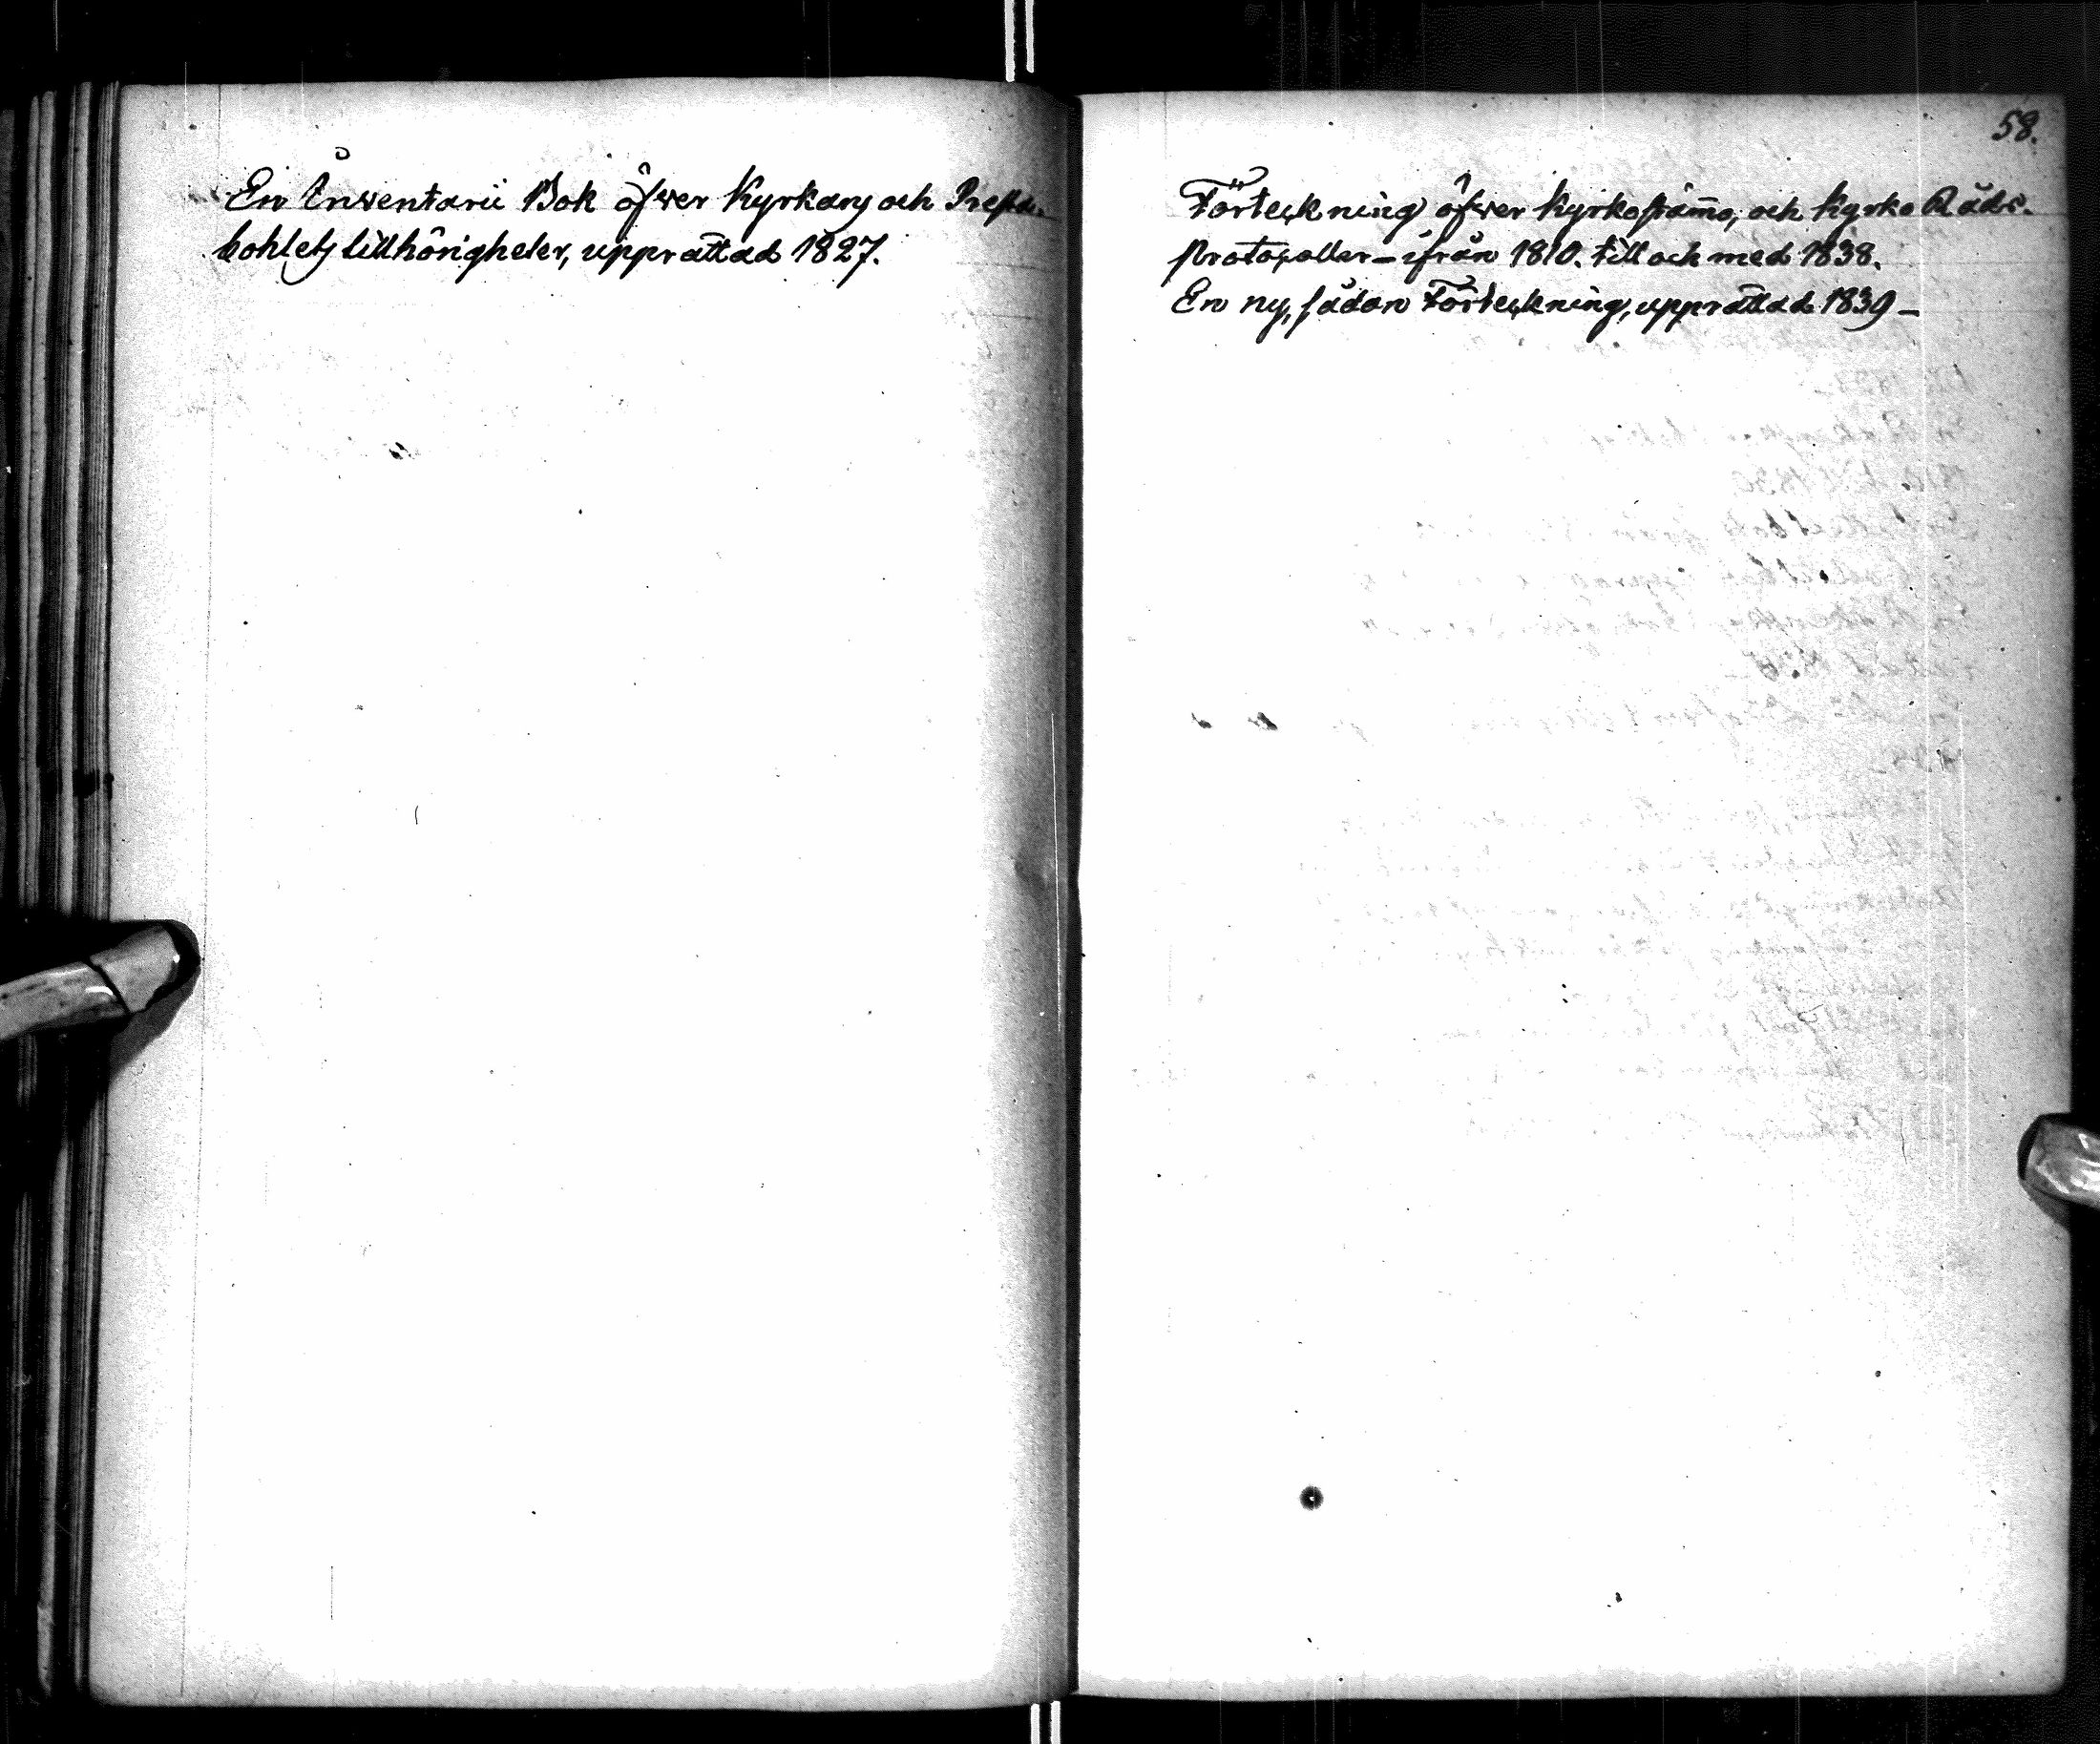 En Inventarii Bok öfwer Kyrkans och Presta-
bohlets tillhörigheter, upprättad 1827.
58.
Förteckning öfwer Kyrkostämo, och Kyrko Råds.
Protocoller – ifrån 1810. till och med 1838.
En ny, sådan Förteckning, upprättad 1839 –